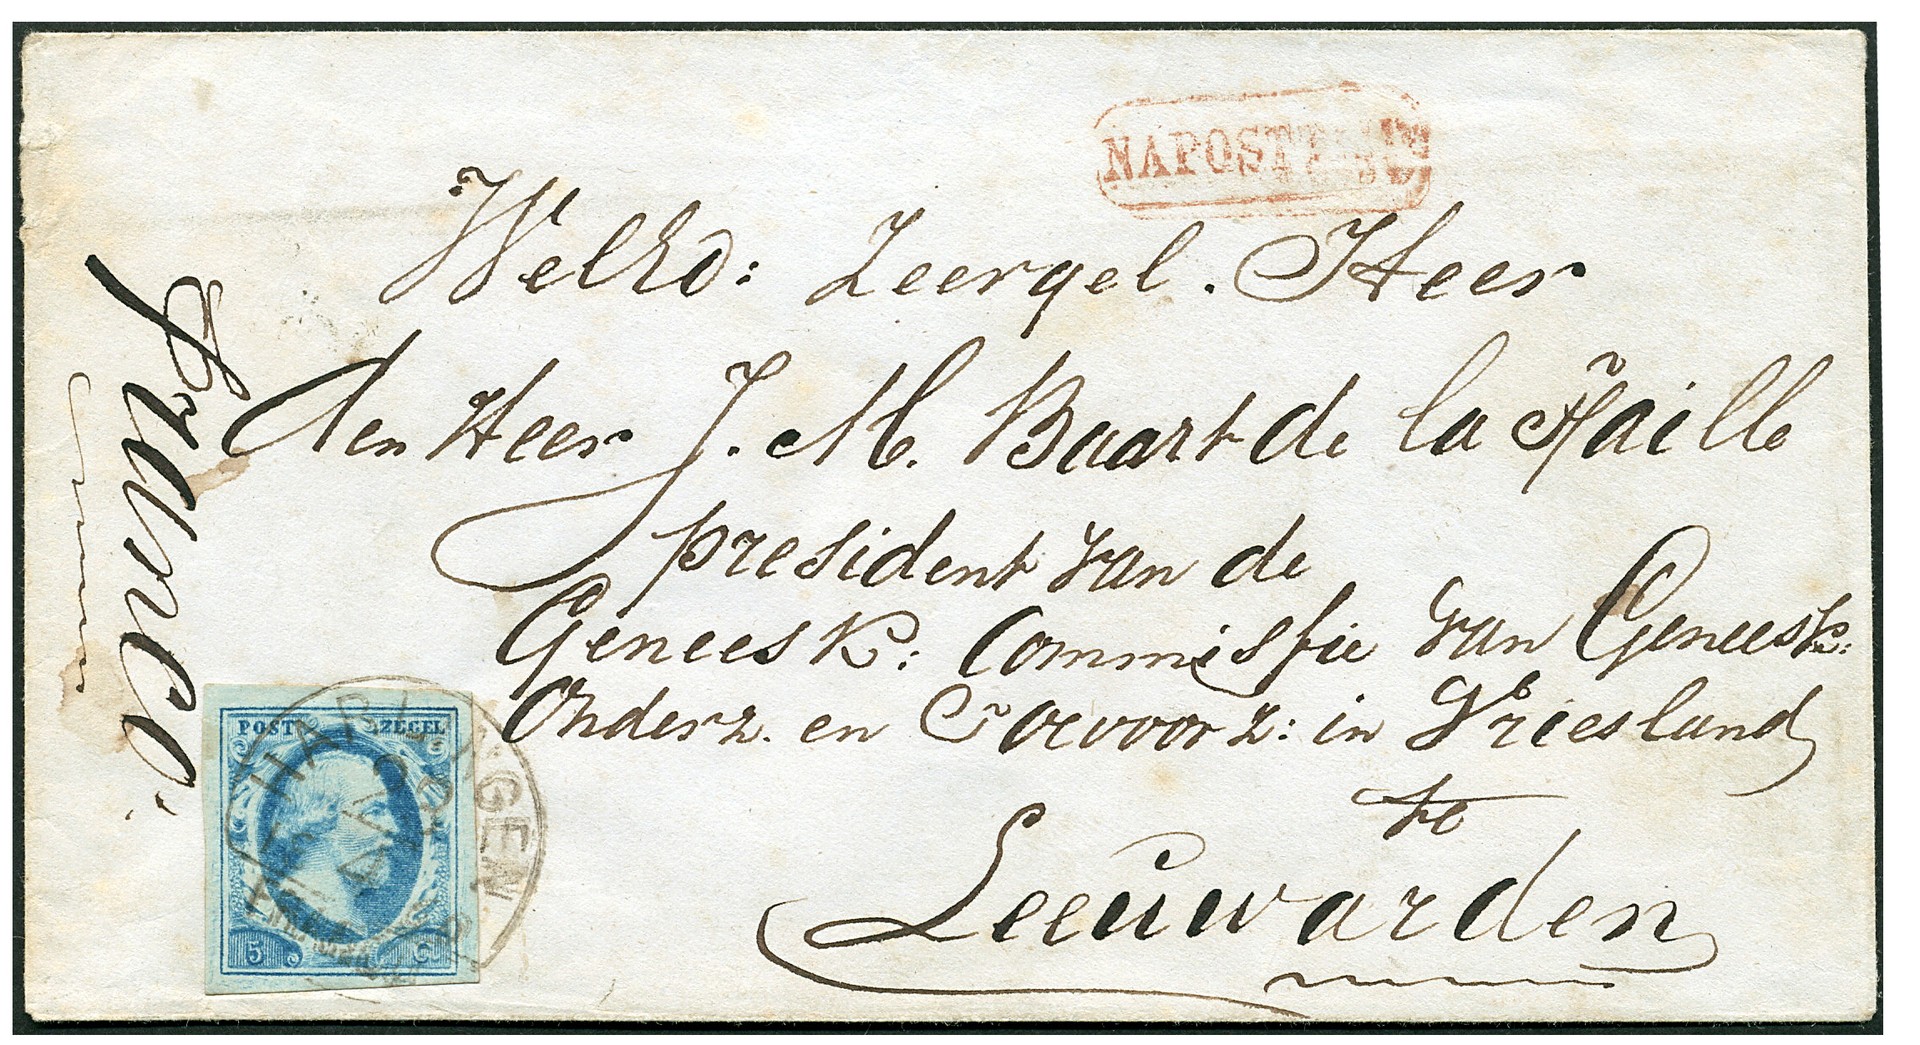 NAPOSTTIJD
WelEd: Zeergel. Heer
Den Heer J. M. Baart de la Faille
president van de
Geneesk: Commissie van Geneesk:
Onderz. en Toevoorz: in Vriesland
te
Leeuwarden
Franco
POST ZEGEL
5 C
HARLINGEN